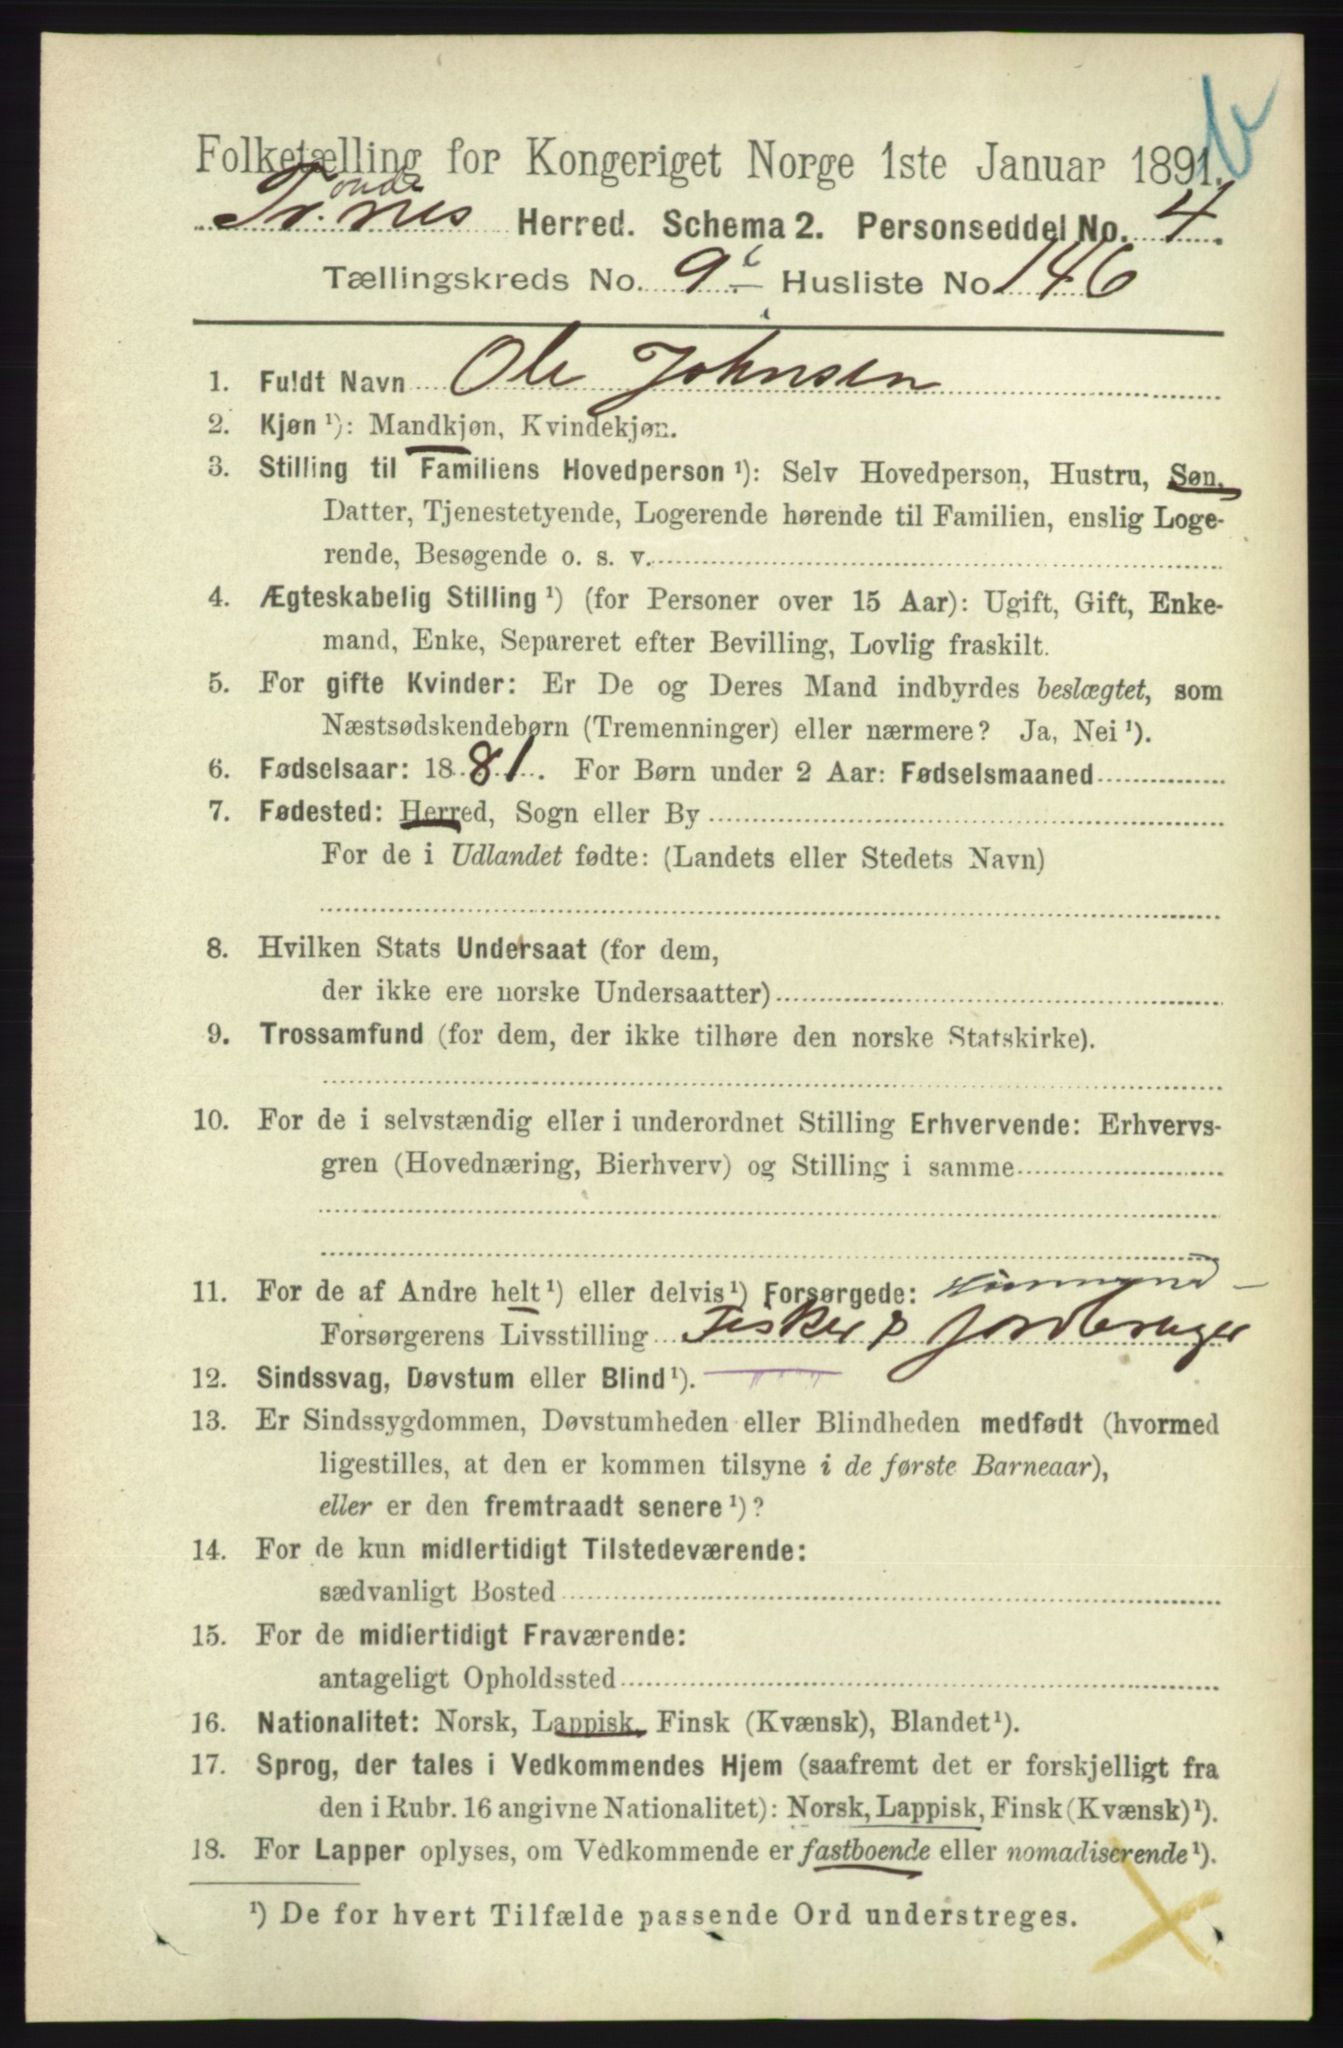 Folketælling for Kongeriget Norge 1ste Januar 1891.
Tr.ondenes Herred. Schema 2. Personseddel No. 4.
Tællingskreds No. 9 Husliste No. 146
1. Fuldt Navn Ole Johnsen
2. Kjøn ¹): Mandkjøn, Kvindekjøn.
3. Stilling til Familiens Hovedperson ¹): Selv Hovedperson, Hustru, Søn,
Datter, Tjenestetyende, Logerende hørende til Familien, enslig Loge-
rende, Besøgende o. s. v.
4. Ægteskabelig Stilling ¹) (for Personer over 15 Aar): Ugift, Gift, Enke-
mand, Enke, Separeret efter Bevilling, Lovlig fraskilt.
5. For gifte Kvinder: Er De og Deres Mand indbyrdes beslægtet, som
Næstsødskendebørn (Tremenninger) eller nærmere? Ja, Nei ¹).
6. Fødselsaar: 1881. For Børn under 2 Aar: Fødselsmaaned
7. Fødested: Herred, Sogn eller By
For de i Udlandet fødte: (Landets eller Stedets Navn)
8. Hvilken Stats Undersaat (for dem,
der ikke ere norske Undersaatter)
9. Trossamfund (for dem, der ikke tilhøre den norske Statskirke).
10. For de i selvstændig eller i underordnet Stilling Erhvervende: Erhvervs-
gren (Hovednæring, Bierhverv) og Stilling i samme
11. For de af Andre helt ¹) eller delvis ¹) Forsørgede:
Forsørgerens Livsstilling Fisker & Jordbruger
12. Sindssvag, Døvstum eller Blind ¹).
13. Er Sindssygdommen, Døvstumheden eller Blindheden medfødt (hvormed
ligestilles, at den er kommen tilsyne i de første Barneaar),
eller er den fremtraadt senere ¹)?
14. For de kun midlertidigt Tilstedeværende:
sædvanligt Bosted
15. For de midlertidigt Fraværende:
antageligt Opholdssted
16. Nationalitet: Norsk, Lappisk, Finsk (Kvænsk), Blandet ¹).
17. Sprog, der tales i Vedkommendes Hjem (saafremt det er forskjelligt fra
den i Rubr. 16 angivne Nationalitet): Norsk, Lappisk, Finsk (Kvænsk) ¹).
18. For Lapper oplyses, om Vedkommende er fastboende eller nomadiserende ¹).
¹) De for hvert Tilfælde passende Ord understreges.